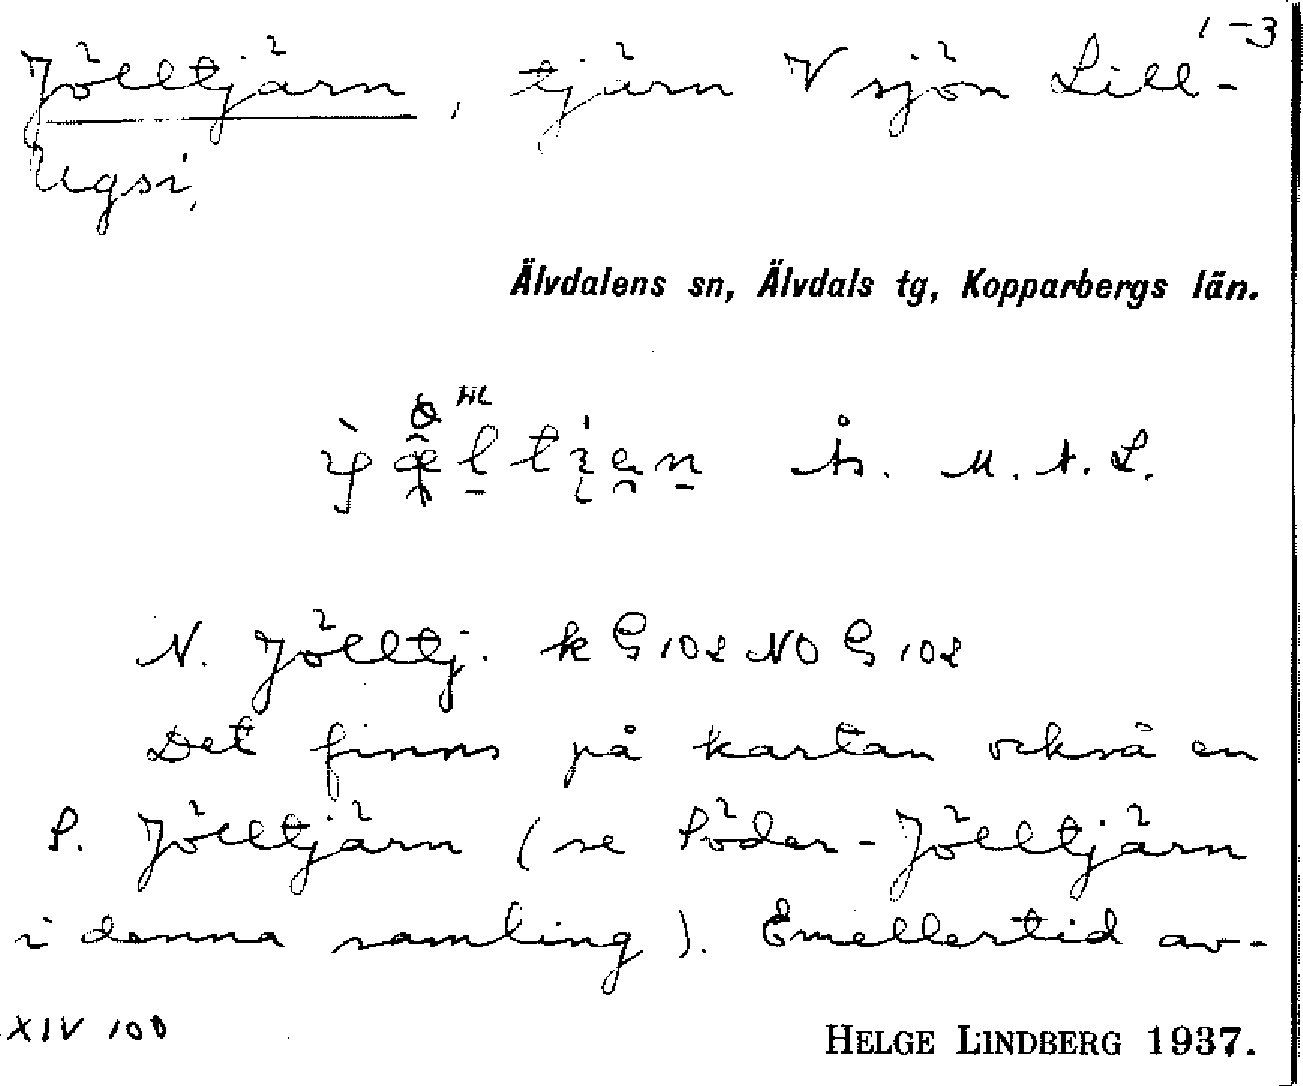 1-3
Jölltjärn, tjärn V sjön Lill-
Ugsi.
Älvdalens sn, Älvdals tg, Kopparbergs län.
HL
Ås. M. A. L.
N. Jölltj. k G 102 NO G 102
Det finns på kartan också en
S. Jölltjärn (se Söder-Jölltjärn
i denna samling). Emellertid av-
XIV 100
HELGE LINDBERG 1937.